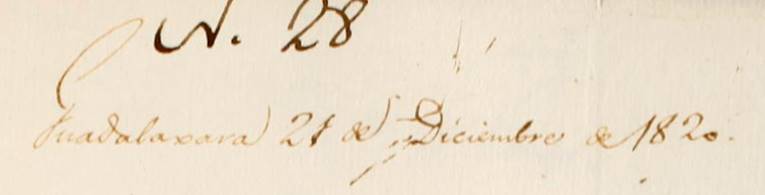 N. 28
Guadalaxara 21 de Diciembre de 1820.